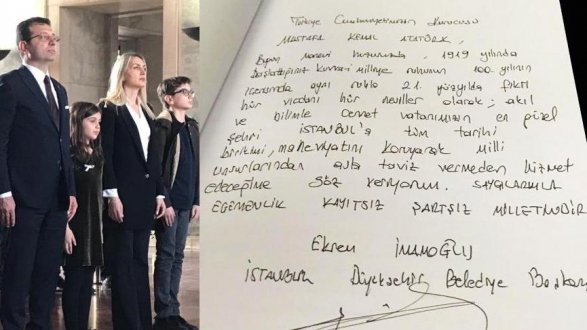 Türkiye Cumhuriyetinin Kurucusu
MUSTAFA KEMAL ATATÜRK,
Bugün manevi huzurunuzda, 1919 yılında
Başlattığınız kuvvayi milliye ruhunun 100. yılının
içerisinde aynı ruhla 21. yüzyılda fikri
hür vicdanı hür nesiller olarak; akıl
ve bilimle cennet vatanımızın en güzel
şehri İSTANBUL'a tüm tarihi
birikimi, maneviyatını koruyarak milli
unsurlarından asla taviz vermeden hizmet
edeceğime söz veriyorum. SAYGILARIMLA
EGEMENLİK KAYITSIZ ŞARTSIZ MİLLETİNDİR
Ekrem İMAMOĞLU
İSTANBUL Büyükşehir Belediye Başkanı